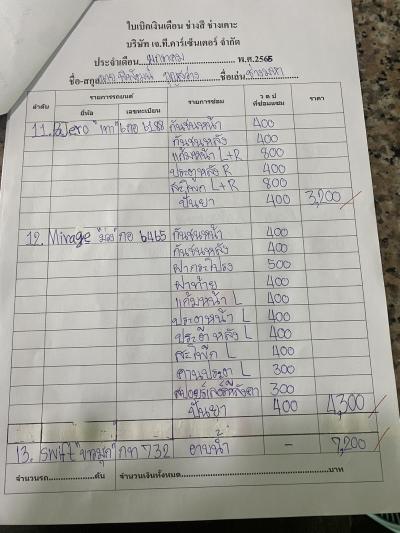 ใบเบิกเงินเดือน ช่างสี ช่างเคาะ
บริษัท เจ.ที.คาร์เซ็นเตอร์ จำกัด
ประจำเดือน มกราคม พ.ศ.2565
ชื่อ-สกุล ชื่อเล่น
ลำดับ รายการรถยนต์ รายการซ่อม ว ด ป ที่ซ่อมแซม ราคา
ยี่ห้อ เลขทะเบียน
11. "เทา" 6188 กันชนหน้า 400
กันชนหลัง 400
แก้มหน้า L+R 800
ประตูหลัง R 400
สะโพก L+R 800
ปั่นยา 400 3,200
12. Mirage กอ 6465 กันชนหน้า 400
กันชนหลัง 400
ฝากระโปรง 500
ฝาท้าย 400
แก้มหน้า L 400
ประตูหน้า L 400
ประตูหลัง L 400
สะโพก L 400
คานประตู L 300
300
ปั่นยา 400 4,300
13. swift "ขาวมุก" กท 732 อาบน้ำ - 7,200
จำนวนรถ คัน จำนวนเงินทั้งหมด บาท